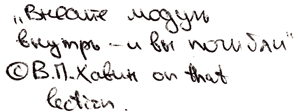 „Внесите модуль
внутрь – и вы погибли“
© В.П.Хавин on that
lection.